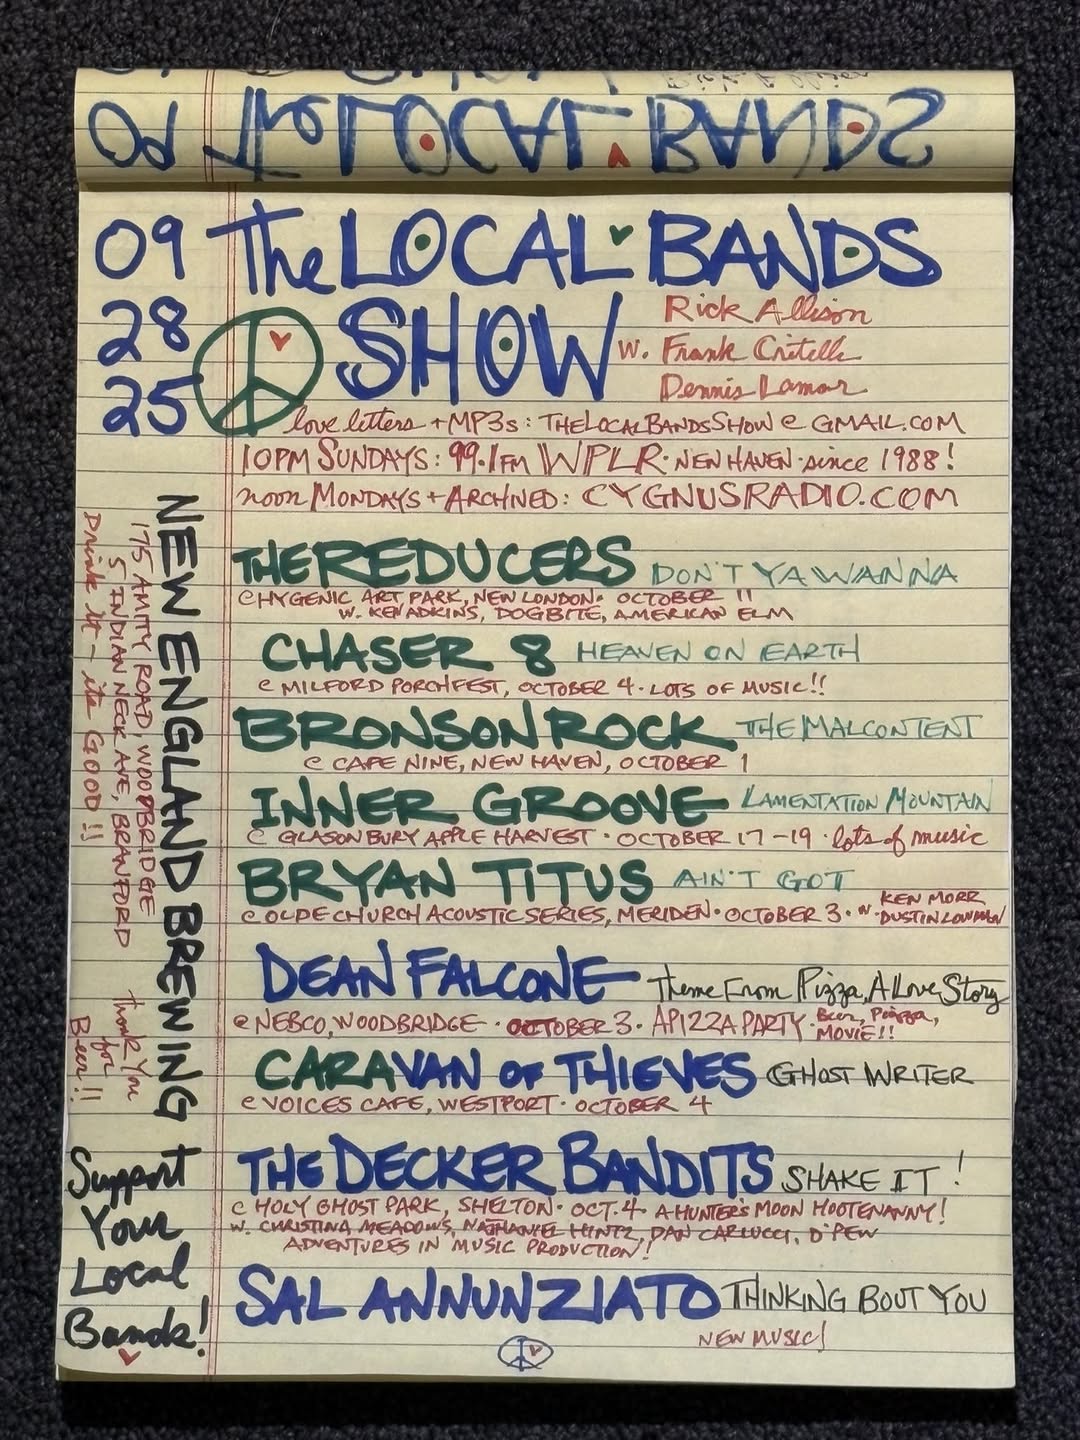 09
28
25
The LOCAL BANDS
SHOW
w. Rick Allison
Frank Critelli
Dennis Lamar
love letters + MP3s: THELOCALBANDSSHOW@GMAIL.COM
10PM SUNDAYS: 99.1FM WPLR · NEW HAVEN · since 1988!
noon MONDAYS + ARCHIVED: CYGNUSRADIO.COM
THE REDUCERS DON'T YA WANNA
@ HYGENIC ART PARK, NEW LONDON · OCTOBER 11
W. KEN ADKINS, DOGBITE, AMERICAN ELM
CHASER 8 HEAVEN ON EARTH
@ MILFORD PORCHFEST, OCTOBER 4 · LOTS OF MUSIC!!
BRONSON ROCK THE MALCONTENT
@ CAFE NINE, NEW HAVEN, OCTOBER 1
INNER GROOVE LAMENTATION MOUNTAIN
@ GLASONBURY APPLE HARVEST · OCTOBER 17-19 · lots of music
BRYAN TITUS AIN'T GOT
@ OLDE CHURCH ACOUSTIC SERIES, MERIDEN · OCTOBER 3 · W. KEN MORR
DUSTIN LOWMAN
DEAN FALCONE Theme From Pizza, A Love Story
@ NEBCO, WOODBRIDGE · OCTOBER 3 · APIZZA PARTY · Beer, Pizza,
MOVIE!!
CARAVAN OF THIEVES GHOST WRITER
@ VOICES CAFE, WESTPORT · OCTOBER 4
THE DECKER BANDITS SHAKE IT!
@ HOLY GHOST PARK, SHELTON · OCT. 4 · A HUNTER'S MOON HOOTENANNY!
W. CHRISTINA MEADOWS, NATHANIEL HINTZ, DAN CARLUCCI, D'PEW
ADVENTURES IN MUSIC PRODUCTION!
SAL ANNUNZIATO THINKING BOUT YOU
NEW MUSIC!
NEW ENGLAND BREWING
175 AMITY ROAD, WOODBRIDGE
5 INDIAN NECK AVE, BRANFORD
Drink It - it's GOOD!!
Thank You
for
Beer!!
Support
Your
Local
Bands!
The LOCAL BANDS